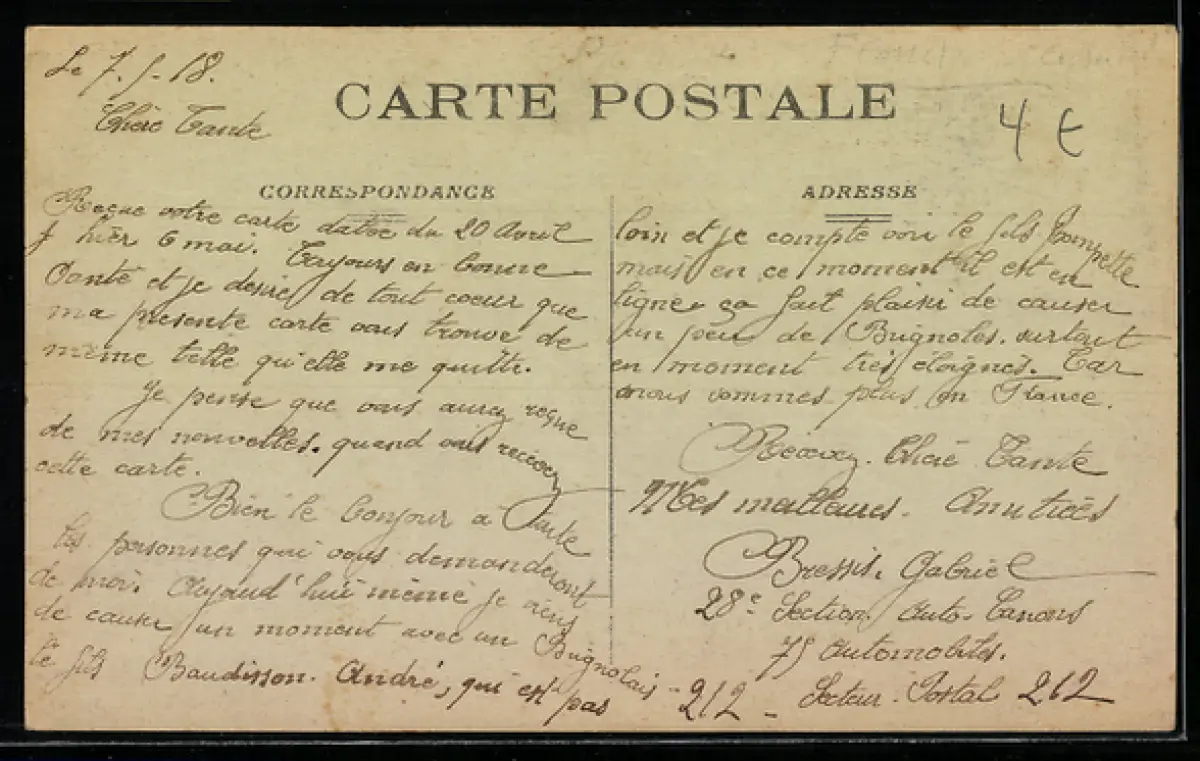 Le 7.5-18.
CARTE POSTALE
4 €
Chère Tante
CORRESPONDANCE
Reçue votre carte datée du 20 Avril
hier 6 mai. Toujours en bonne
Santé et je désire de tout coeur que
ma présente carte vous trouve de
même telle qu'elle me quitte.
Je pense que vous aurez reçue
de mes nouvelles. quand vous recevez
cette carte.
Bien le bonjour à toute
les personnes qui vous demanderont
de moi. Aujourd'hui même je viens
de causer un moment avec un Brignolais
le fils Baudisson. André, qui est pas
ADRESSE
loin et je compte voir le fils
mais en ce moment il est en
ligne ça fait plaisir de causer
un peu de Brignoles. surtout
en moment très éloignés. Car
nous sommes plus en France.
Recevez. Chère Tante
Mes meilleures. Amitiés
Bressis. Gabriel
28e Section Auto-Canons
75 Automobiles.
- 212 - Secteur. Postal 212